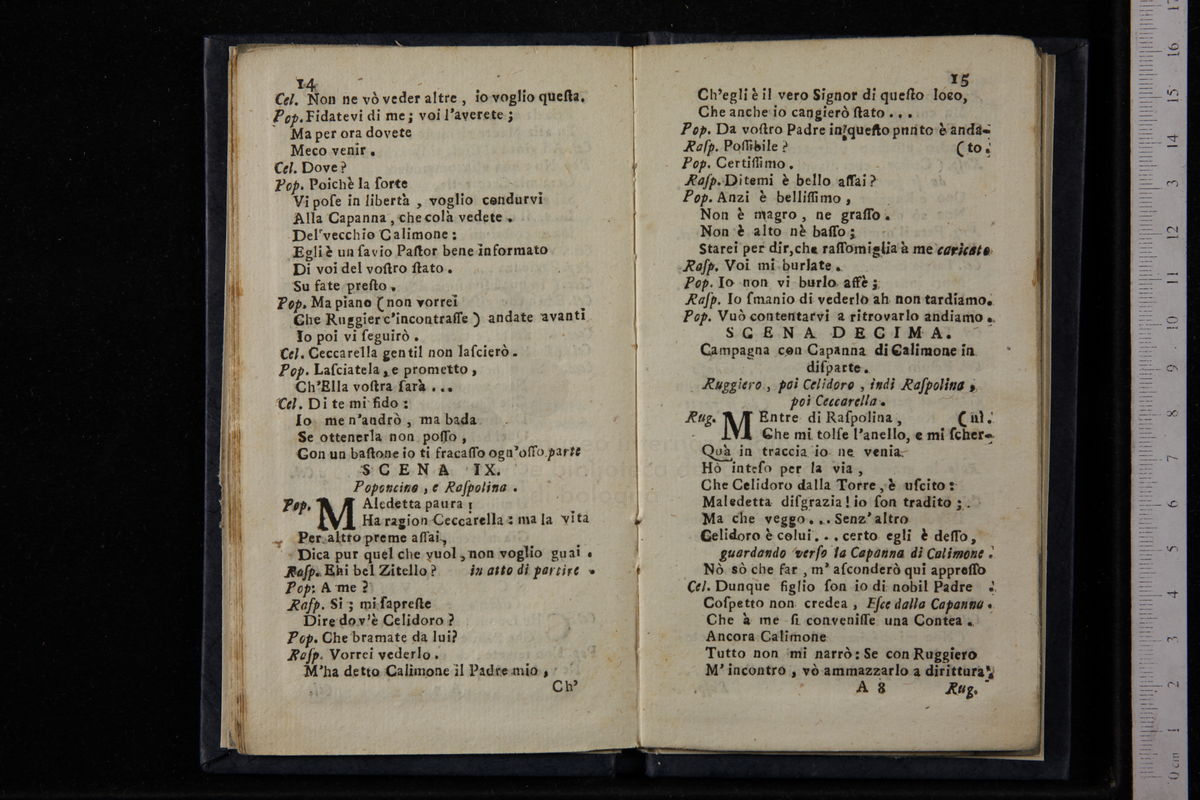 14
Cel. Non ne vò veder altre, io voglio queſta.
Pop. Fidatevi di me; voi l'averete;
Ma per ora dovete
Meco venir.
Cel. Dove?
Pop. Poichè la ſorte
Vi poſe in libertà, voglio condurvi
Alla Capanna, che colà vedete.
Del vecchio Calimone:
Egli è un ſavio Paſtor bene informato
Di voi del voſtro ſtato.
Su fate preſto.
Pop. Ma piano (non vorrei
Che Ruggier c'incontraſſe) andate avanti
Io poi vi ſeguirò.
Cel. Ceccarella gentil non laſcierò.
Pop. Laſciatela, e prometto,
Ch'Ella voſtra ſarà...
Cel. Di te mi fido:
Io me n'andrò, ma bada
Se ottenerla non poſſo,
Con un baſtone io ti fracaſſo ogn'oſſo parte
SCENA IX.
Poponcino, e Raſpolina.
Pop. MAledetta paura!
Ha ragion Ceccarella: ma la vita
Per altro preme aſſai,
Dica pur quel che vuol, non voglio guai.
Raſp. Ehi bel Zitello? in atto di partire.
Pop: A me?
Raſp. Si; mi ſapreſte
Dire dov'è Celidoro?
Pop. Che bramate da lui?
Raſp. Vorrei vederlo.
M'ha detto Calimone il Padre mio,
Ch'
15
Ch'egli è il vero Signor di queſto loco,
Che anche io cangierò ſtato...
Pop. Da voſtro Padre in queſto punto è anda-
Raſp. Poſſibile? (to.
Pop. Certiſſimo.
Raſp. Ditemi è bello aſſai?
Pop. Anzi è belliſſimo,
Non è magro, ne graſſo.
Non è alto nè baſſo;
Starei per dir, che raſſomiglia à me caricato
Raſp. Voi mi burlate.
Pop. Io non vi burlo affè;
Raſp. Io ſmanio di vederlo ah non tardiamo.
Pop. Vuò contentarvi a ritrovarlo andiamo.
SCENA DECIMA.
Campagna con Capanna di Calimone in
diſparte.
Ruggiero, poi Celidoro, indi Raſpolina,
poi Ceccarella.
Rug. MEntre di Raſpolina, (nì.
Che mi tolſe l'anello, e mi ſcher-
Quà in traccia io ne venia.
Hò inteſo per la via,
Che Celidoro dalla Torre, è uſcito:
Maledetta diſgrazia! io ſon tradito;
Ma che veggo... Senz'altro
Celidoro è colui... certo egli è deſſo,
guardando verſo la Capanna di Calimone.
Nò sò che far, m'aſconderò qui appreſſo
Cel. Dunque figlio ſon io di nobil Padre.
Coſpetto non credea, Eſce dalla Capanna.
Che à me ſi conveniſſe una Contea.
Ancora Calimone
Tutto non mi narrò: Se con Ruggiero
M'incontro, vò ammazzarlo a dirittura.
A 8 Rug.